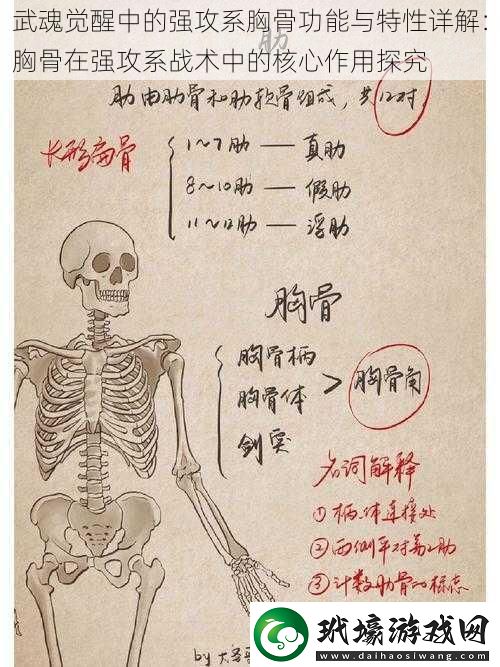 武魂觉醒中的强攻系胸骨功能与特性详解：
胸骨在强攻系战术中的核心作用探究
肋
肋由肋骨和肋软骨组成，共12对
长形扁骨
1~7肋 — 真肋
8~10肋 — 假肋
11~12肋 — 浮肋
胸骨
胸骨柄
胸骨体 > 胸骨角
剑突
名词解释
①柄、体连接处
②两侧平对第2肋
③计数肋骨的标志
by 大圣
玳壕游戏网
www.daihaosiwang.com